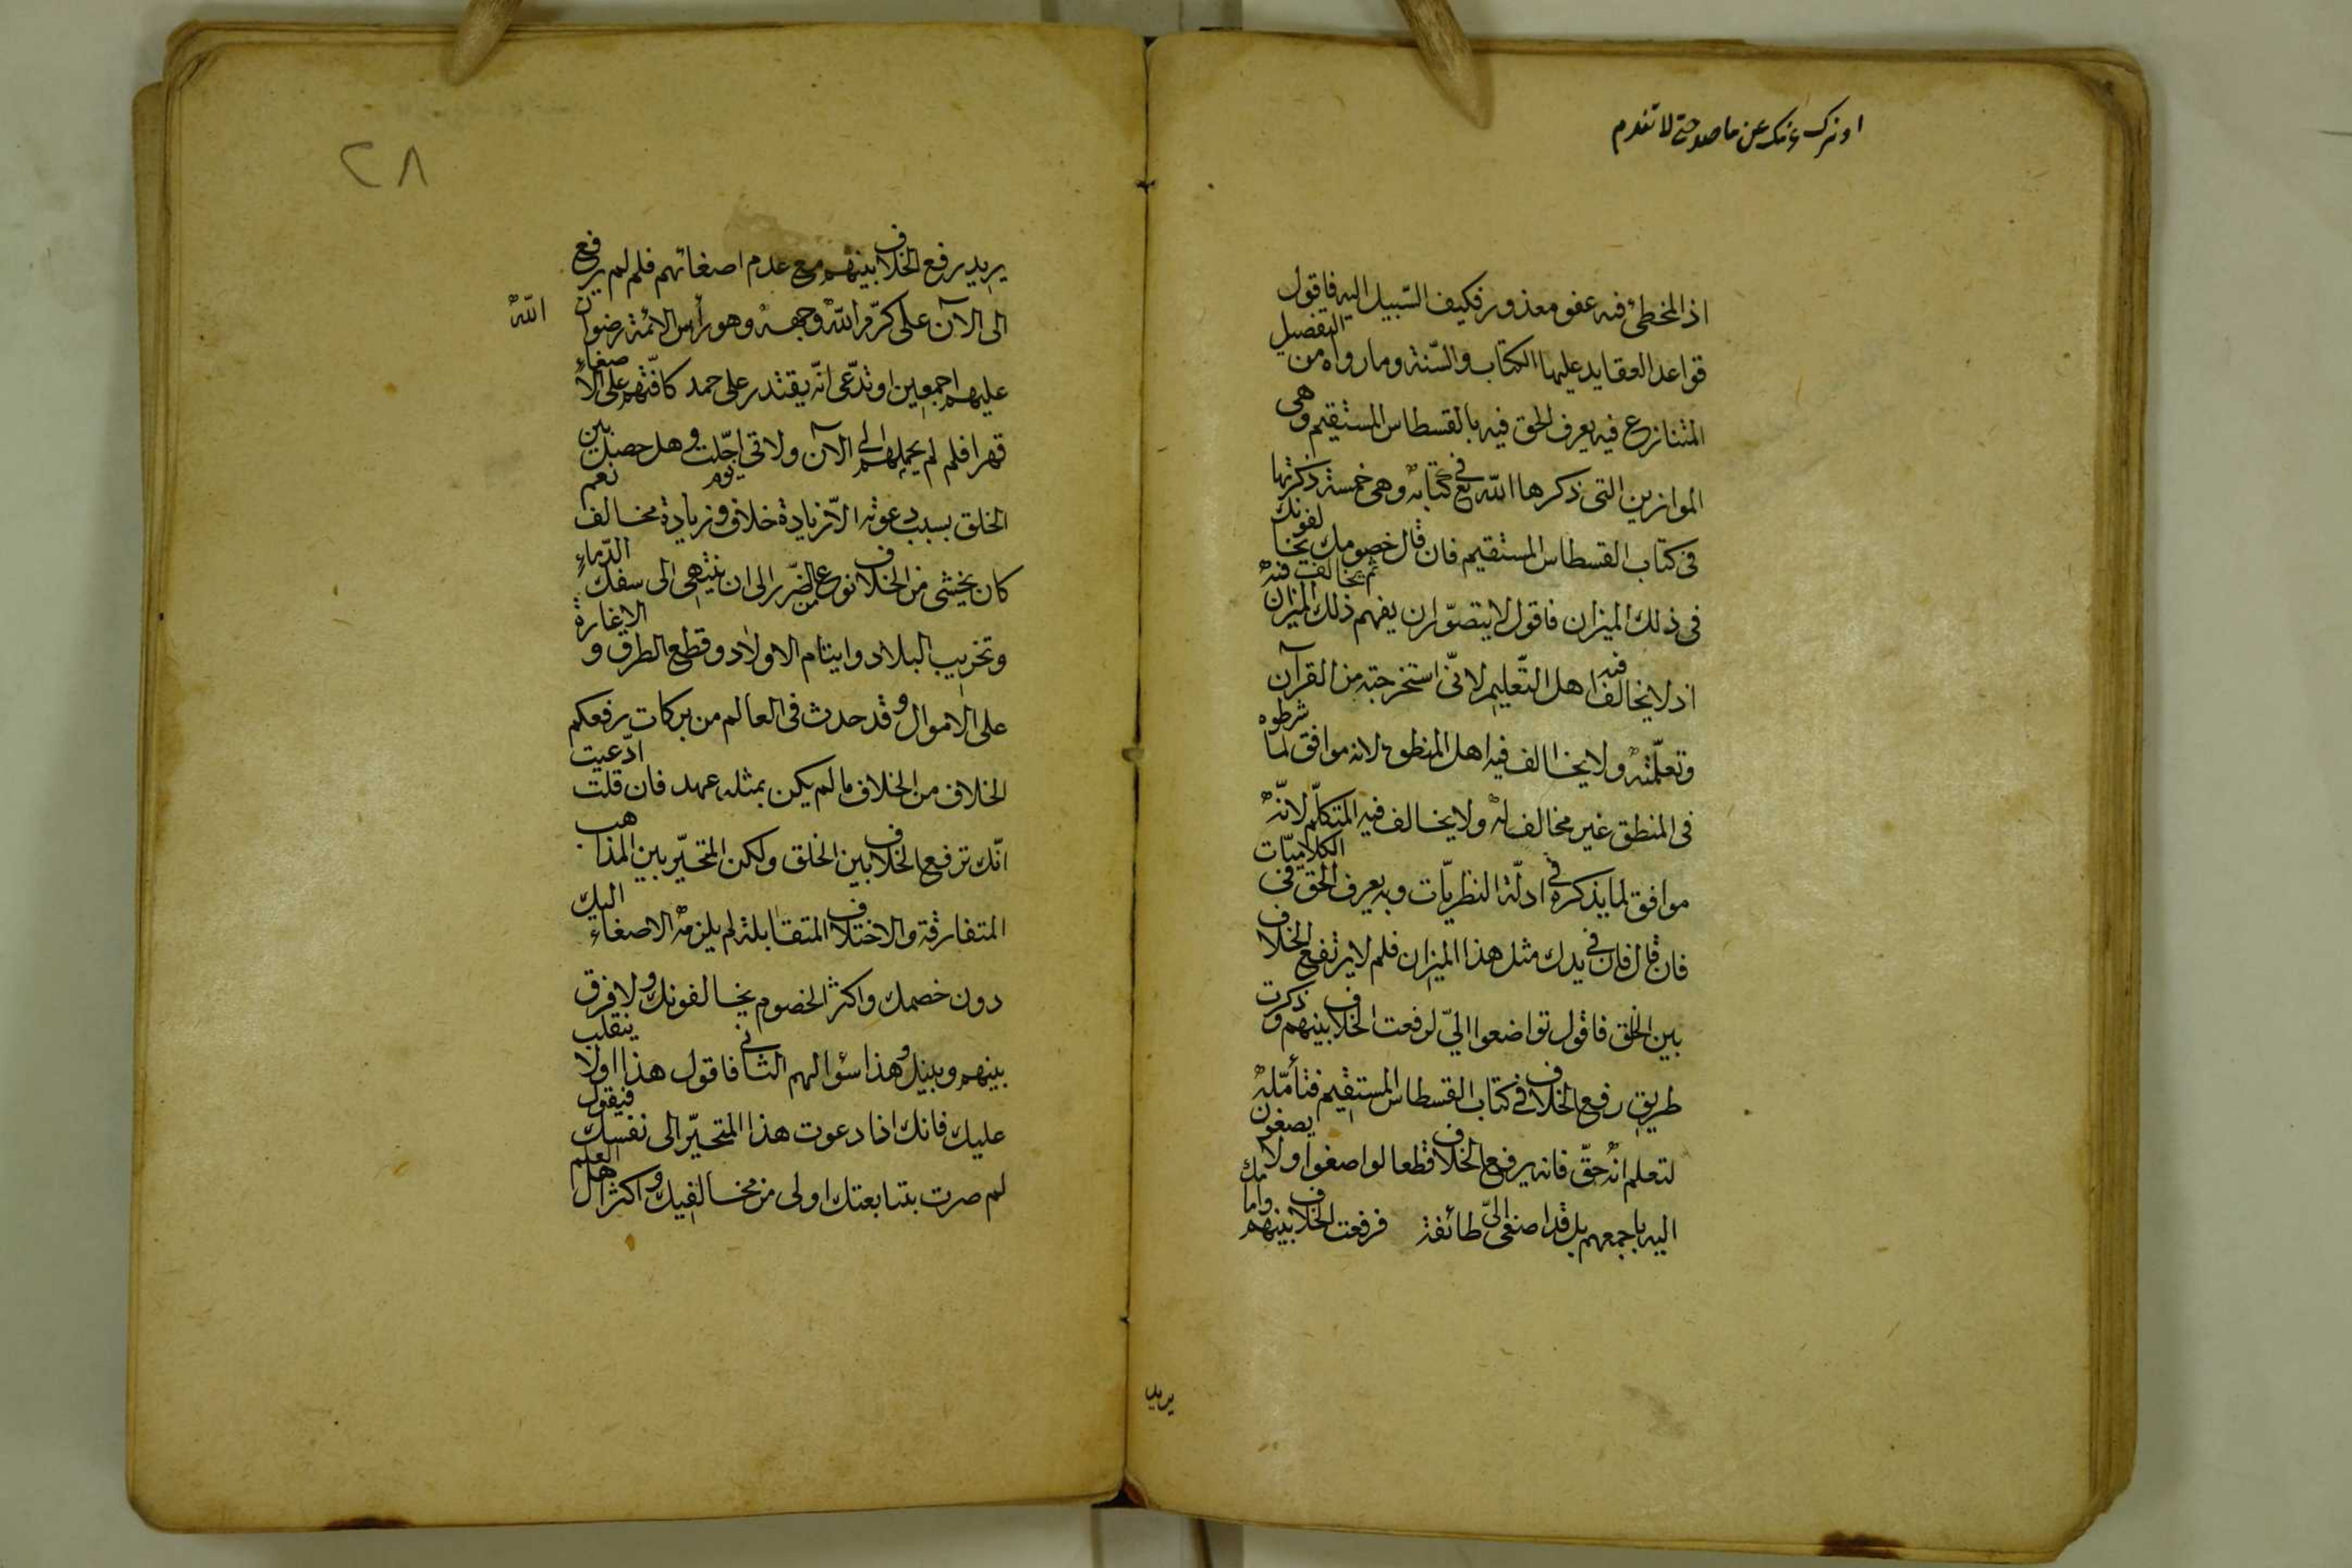 اذ المخطئ فيه عفو معذور فكيف السّبيل اليه فاقول
قواعد العقايد عليها الكتاب والسّنة وما رواه من التفصيل
المتنازع فيه يعرف الحق فيه بالقسطاس المستقيم وهى
الموازين التى ذكرها اللّه تع فى كتابه وهى خمسة ذكرتها
فى كتاب القسطاس المستقيم فان قال خصومك يخالفونك
فى ذلك الميزان فاقول لا يتصوّر ان يفهم ذلك الميزان ثم يخالف فيه
اذ لا يخالف فيه اهل التّعليم لانّى استخرجته من القرآن
وتعلّمته ولا يخالف فيه اهل المنطق لانه موافق لما شرطوه
فى المنطق غير مخالف له ولا يخالف فيه المتكلّم لانّه
موافق لما يذكره فى ادلّة النظريّات وبه يعرف الحق فى الكلاميّات
فان قال فان فى يدك مثل هذا الميزان فلم لا يرتفع الخلاف
بين الخلق فاقول تواضعوا اليّ لرفعت الخلاف بينهم وذكرت
طريق رفع الخلاف فى كتاب القسطاس المستقيم فتأمّله
لتعلم انه حقّ فانه يرفع الخلاف قطعا لو اصغوا ولا يصغون
اليه باجمعهم بل قد اصغى اليّ طائفة فرفعت الخلاف بينهم وامامك
يريد
٢٨
يريد رفع الخلاف بينهم مع عدم اصغائهم فلم لم يرفع
الى الآن على كرّم اللّه وجهه وهو رأس الائمة رضوان اللّه
عليهم اجمعين او تدّعى انّه يقتدر على حمد كافّتهم على الاصغاء
قهرا فلم لم يحملهم الى الآن ولاى يوم اجّلت وهل حصل بين
الخلق بسبب دعوته الّا زيادة خلاف وزيادة مخالف نعم
كان يخشى من الخلاف نوع من الضّرر الى ان ينتهى الى سفك الدّماء
وتخريب البلاد وايتام الاولاد وقطع الطرق والاغارة
على الاموال وقد حدث فى العالم من بركات رفعكم
الخلاف من الخلاف ما لم يكن بمثله عهد فان قلت ادّعيت
انّك ترفع الخلاف بين الخلق ولكن المتحيّر بين المذاهب
المتفارقة والاختلاف المتقابلة لم يلزمه الاصغاء اليك
دون خصمك واكثر الخصوم يخالفونك ولا فرق
بينهم وبينك وهذا سؤالهم الثانى فاقول هذا اولا ينقلب
عليك فانك اذا دعوت هذا المتحيّر الى نفسك فيقول
لم صرت بتابعتك اولى من مخالفيك واكثر اهل العلم